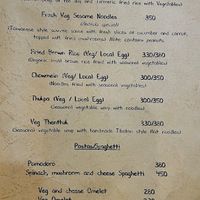 Fresh Veg Sesame Noodles 350
(Taiwanese style sesame sauce with fresh slices of cucumber and carrot,
topped with fried mushrooms) Note contains peanuts.
Fried Brown Rice (Veg/ Local Egg) 330/380
(Organic fried brown rice fried with seasonal vegetables)
Chowmein (Veg/ Local Egg) 300/350
(Noodles fried with seasonal vegetables)
Thukpa (Veg / Local Egg) 300/350
(Seasonal vegetable soup with noodles)
Veg Thenthuk 330/380
(Seasonal vegetable soup with handmade Tibetan style flat noodles)
Pastas/Spaghetti
Pomodoro 380
Spinach, mushroom and cheese Spaghetti 450
Veg and cheese Omelet 280
Veg Omelet